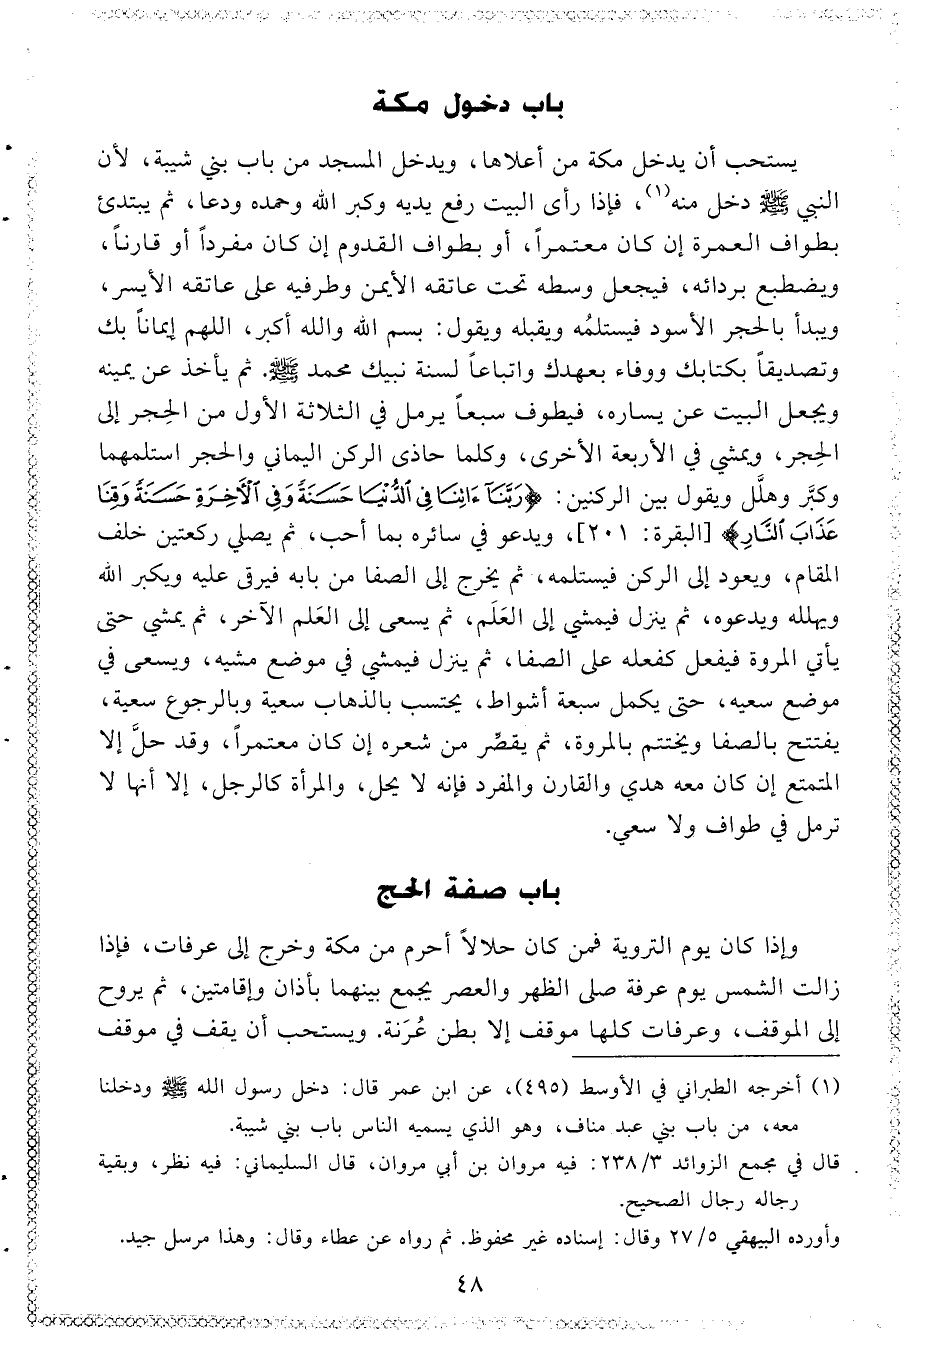 باب دخول مكة
يستحب أن يدخل مكة من أعلاها، ويدخل المسجد من باب بني شيبة، لأن
النبي ﷺ دخل منه(١)، فإذا رأى البيت رفع يديه وكبر الله وحمده ودعا، ثم يبتدئ
بطواف العمرة إن كان معتمراً، أو بطواف القدوم إن كان مفرداً أو قارناً،
ويضطبع بردائه، فيجعل وسطه تحت عاتقه الأيمن وطرفيه على عاتقه الأيسر،
ويبدأ بالحجر الأسود فيستلمُه ويقبله ويقول: بسم الله والله أكبر، اللهم إيماناً بك
وتصديقاً بكتابك ووفاء بعهدك واتباعاً لسنة نبيك محمد ﷺ. ثم يأخذ عن يمينه
ويجعل البيت عن يساره، فيطوف سبعاً يرمل في الثلاثة الأول من الحِجر إلى
الحِجر، ويمشي في الأربعة الأخرى، وكلما حاذى الركن اليماني والحجر استلمهما
وكبَّر وهلَّل ويقول بين الركنين: ﴿رَبَّنَآ ءَاتِنَا فِي ٱلدُّنْيَا حَسَنَةً وَفِي ٱلْأَخِرَةِ حَسَنَةً وَقِنَا
عَذَابَ ٱلنَّارِ﴾ [البقرة: ٢٠١]، ويدعو في سائره بما أحب، ثم يصلي ركعتين خلف
المقام، ويعود إلى الركن فيستلمه، ثم يخرج إلى الصفا من بابه فيرقى عليه ويكبر الله
ويهلله ويدعوه، ثم ينزل فيمشي إلى العَلَم، ثم يسعى إلى العَلم الآخر، ثم يمشي حتى
يأتي المروة فيفعل كفعله على الصفا، ثم ينزل فيمشي في موضع مشيه، ويسعى في
موضع سعيه، حتى يكمل سبعة أشواط، يحتسب بالذهاب سعية وبالرجوع سعية،
يفتتح بالصفا ويختتم بالمروة، ثم يقصِّر من شعره إن كان معتمراً، وقد حلَّ إلا
المتمتع إن كان معه هدي والقارن والمفرد فإنه لا يحل، والمرأة كالرجل، إلا أنها لا
ترمل في طواف ولا سعي.
باب صفة الحج
وإذا كان يوم التروية فمن كان حلالاً أحرم من مكة وخرج إلى عرفات، فإذا
زالت الشمس يوم عرفة صلى الظهر والعصر يجمع بينهما بأذان وإقامتين، ثم يروح
إلى الموقف، وعرفات كلها موقف إلا بطن عُرَنة. ويستحب أن يقف في موقف
(١) أخرجه الطبراني في الأوسط (٤٩٥)، عن ابن عمر قال: دخل رسول الله ﷺ ودخلنا
معه، من باب بني عبد مناف، وهو الذي يسميه الناس باب بني شيبة.
قال في مجمع الزوائد ٢٣٨/٣: فيه مروان بن أبي مروان، قال السليماني: فيه نظر، وبقية
رجاله رجال الصحيح.
وأورده البيهقي ٢٧/٥ وقال: إسناده غير محفوظ. ثم رواه عن عطاء وقال: وهذا مرسل جيد.
٤٨